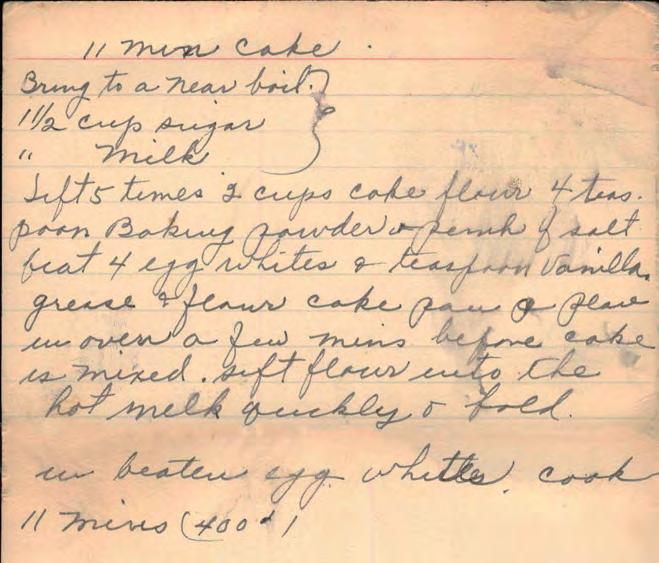 11 min cake.
Bring to a near boil.
1 1/2 cup sugar
" Milk
Sift 5 times 2 cups cake flour 4 teas.
poon Baking powder & pinch of salt
beat 4 egg whites & teaspoon Vanilla.
grease & flour cake pan & place
in oven a few mins before cake
is mixed. sift flour into the
hot milk quickly & fold.
in beaten egg whites. cook
11 mins (400°)